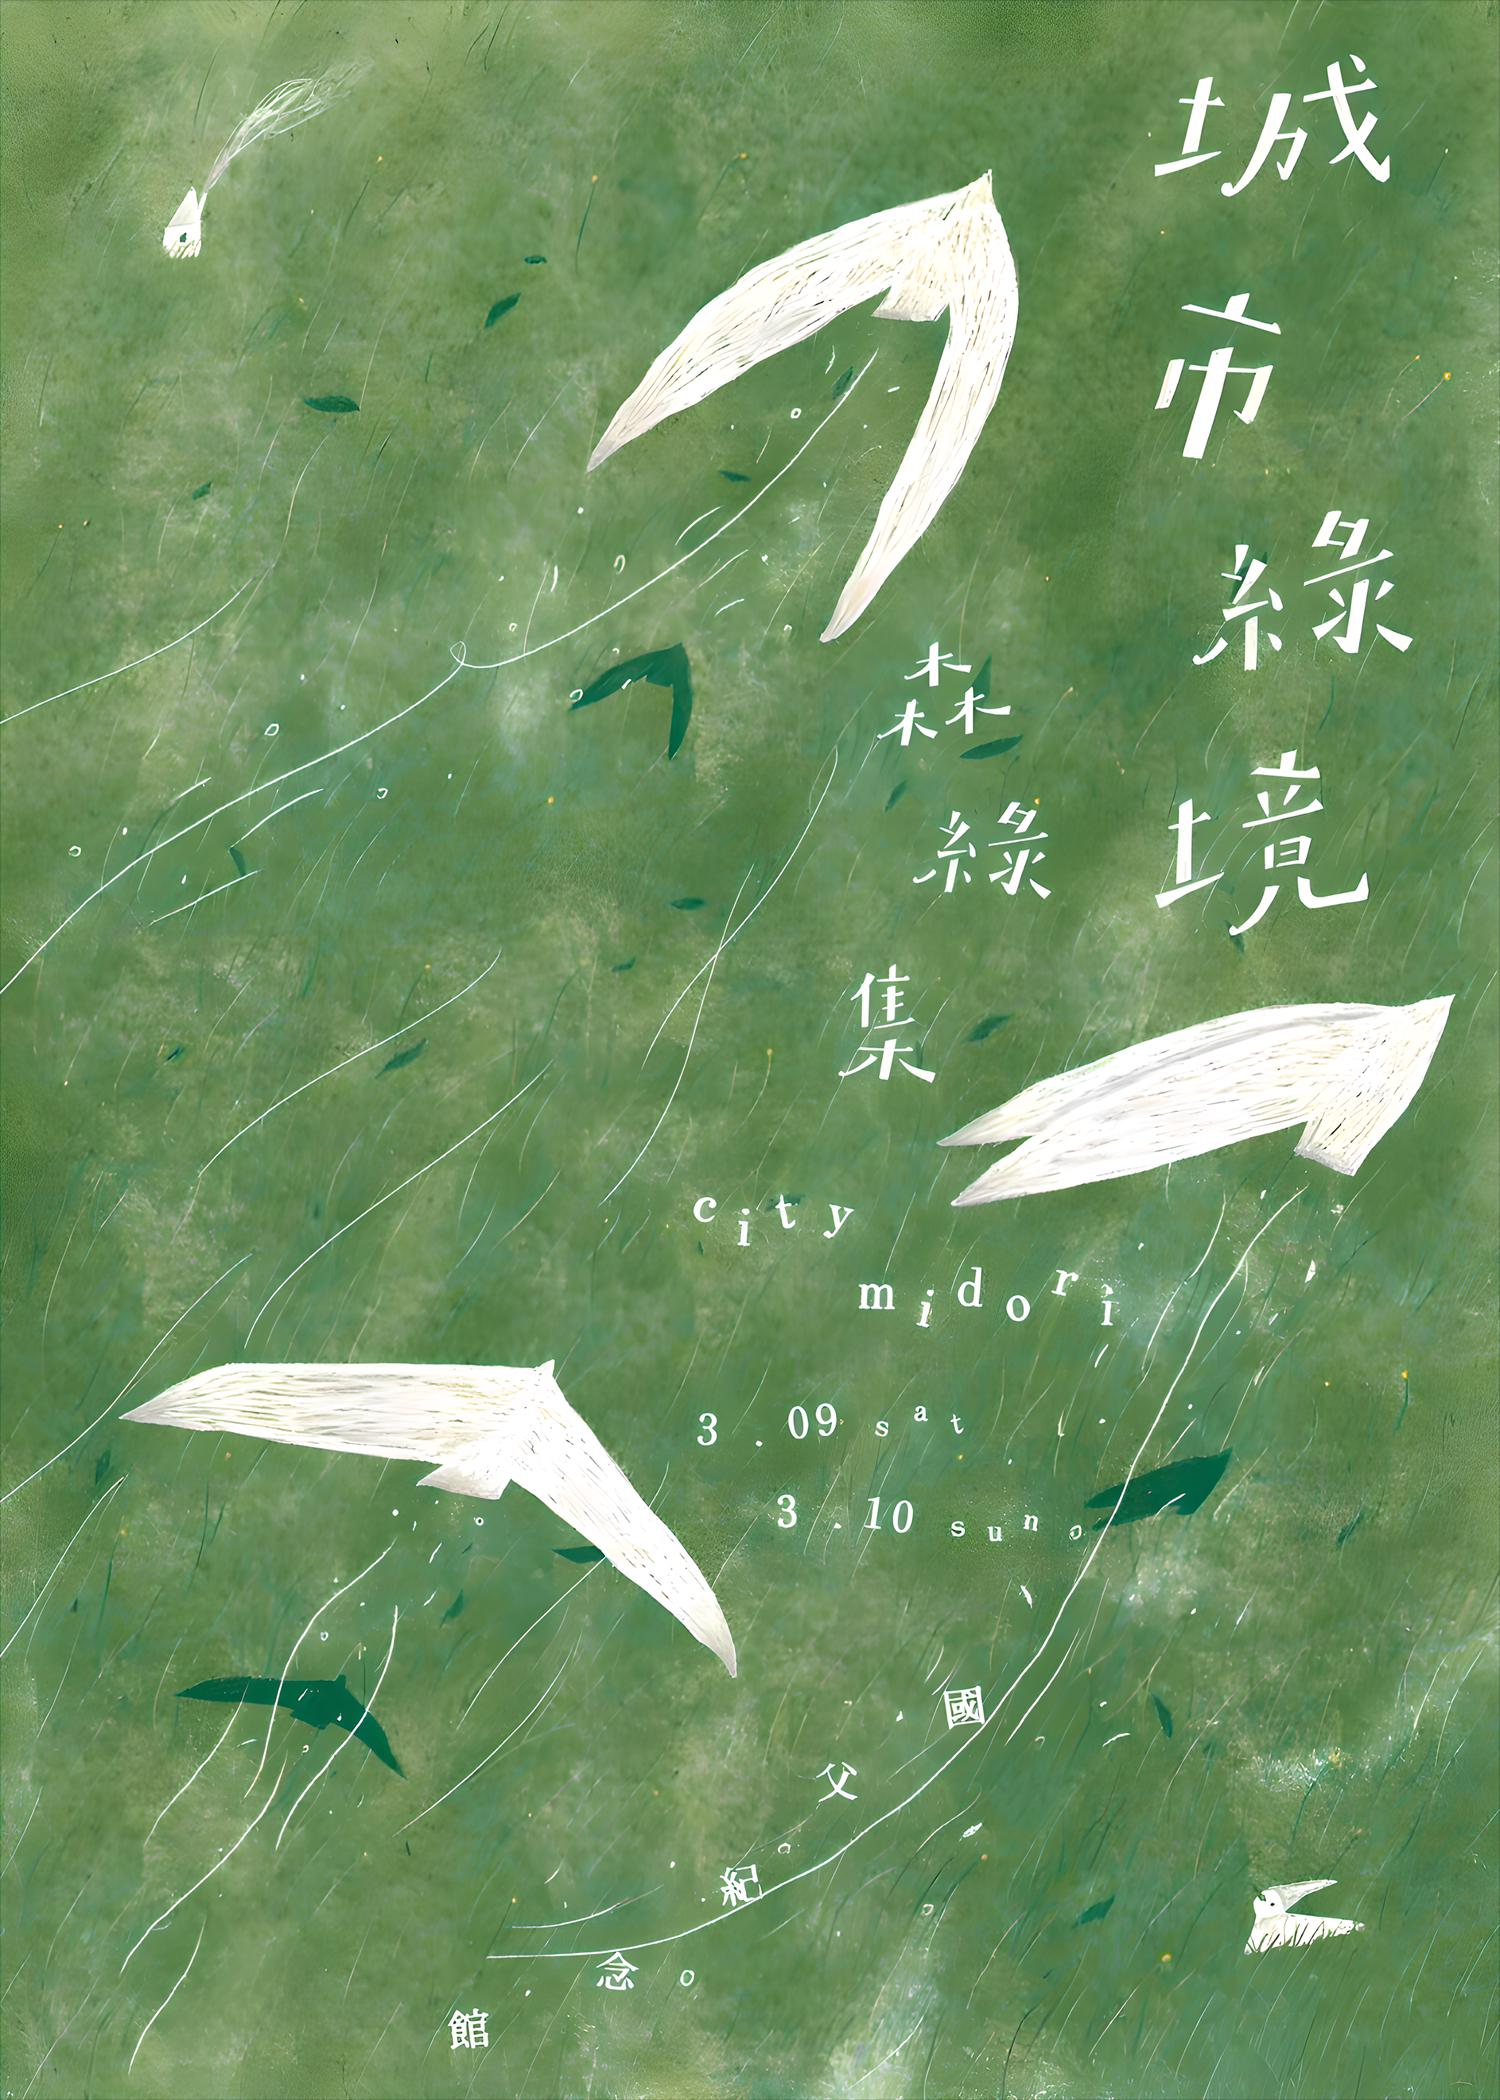 城市綠境
森綠集
city
midori
3.09 sat
3.10 sun
國父紀念館